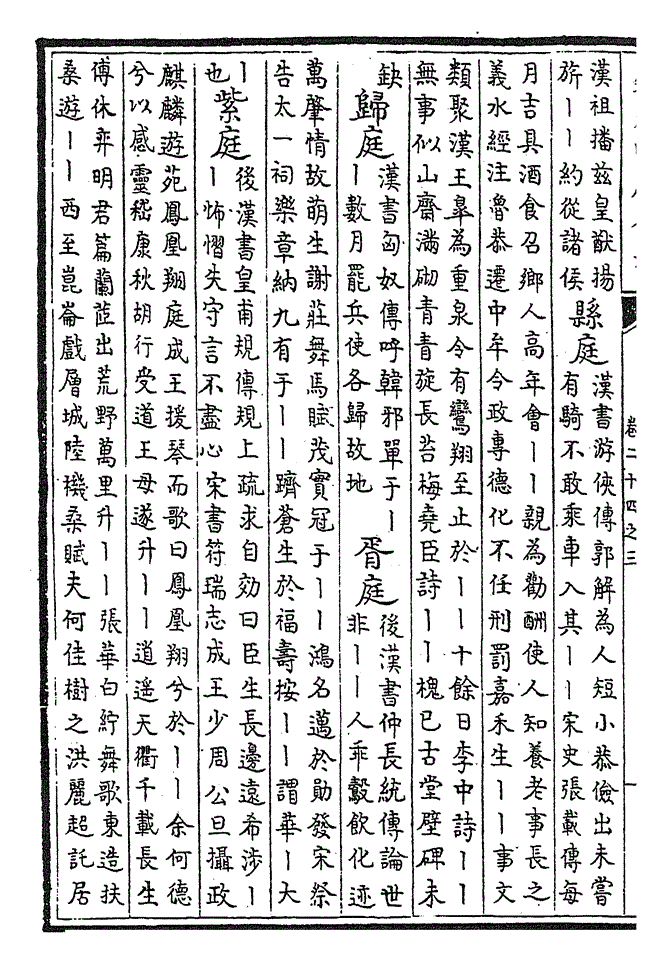 漢祖播兹皇猷揚
旂丨丨約從諸侯
縣庭
漢書游俠傳郭解為人短小恭儉出未嘗
有騎不敢乘車入其丨丨宋史張載傳每
月吉具酒食召鄉人高年會丨丨親為勸酬使人知養老事長之
義水經注魯恭遷中牟令政專德化不任刑罰嘉禾生丨丨事文
類聚漢王皋為重泉令有鸞翔至止於丨丨十餘日李中詩丨丨
無事似山齋滿砌青青旋長苔梅堯臣詩丨丨槐已古堂壁碑未
缺
歸庭
漢書匈奴傳呼韓邪單于丨
丨數月罷兵使各歸故地
胥庭
後漢書仲長統傳論世
非丨丨人乖鷇飲化迹
萬肇情故萌生謝莊舞馬賦茂實冠于丨丨鴻名邁於勛發宋祭
告太一祠樂章納九有于丨丨躋蒼生於福壽按丨丨謂華丨大
丨
也
紫庭
後漢書皇甫規傳規上疏求自効曰臣生長邊遠希涉丨
丨怖慴失守言不盡心宋書符瑞志成王少周公旦攝政
麒麟遊苑鳳凰翔庭成王援琴而歌曰鳳凰翔兮於丨丨余何德
兮以感靈嵇康秋胡行受道王母遂升丨丨逍遥天衢千載長生
傅休弈明君篇蘭茝出荒野萬里升丨丨張華白紵舞歌東造扶
桑遊丨丨西至崑崙戲層城陸機桑賦夫何佳樹之洪麗超託居
卷二十四之三
一